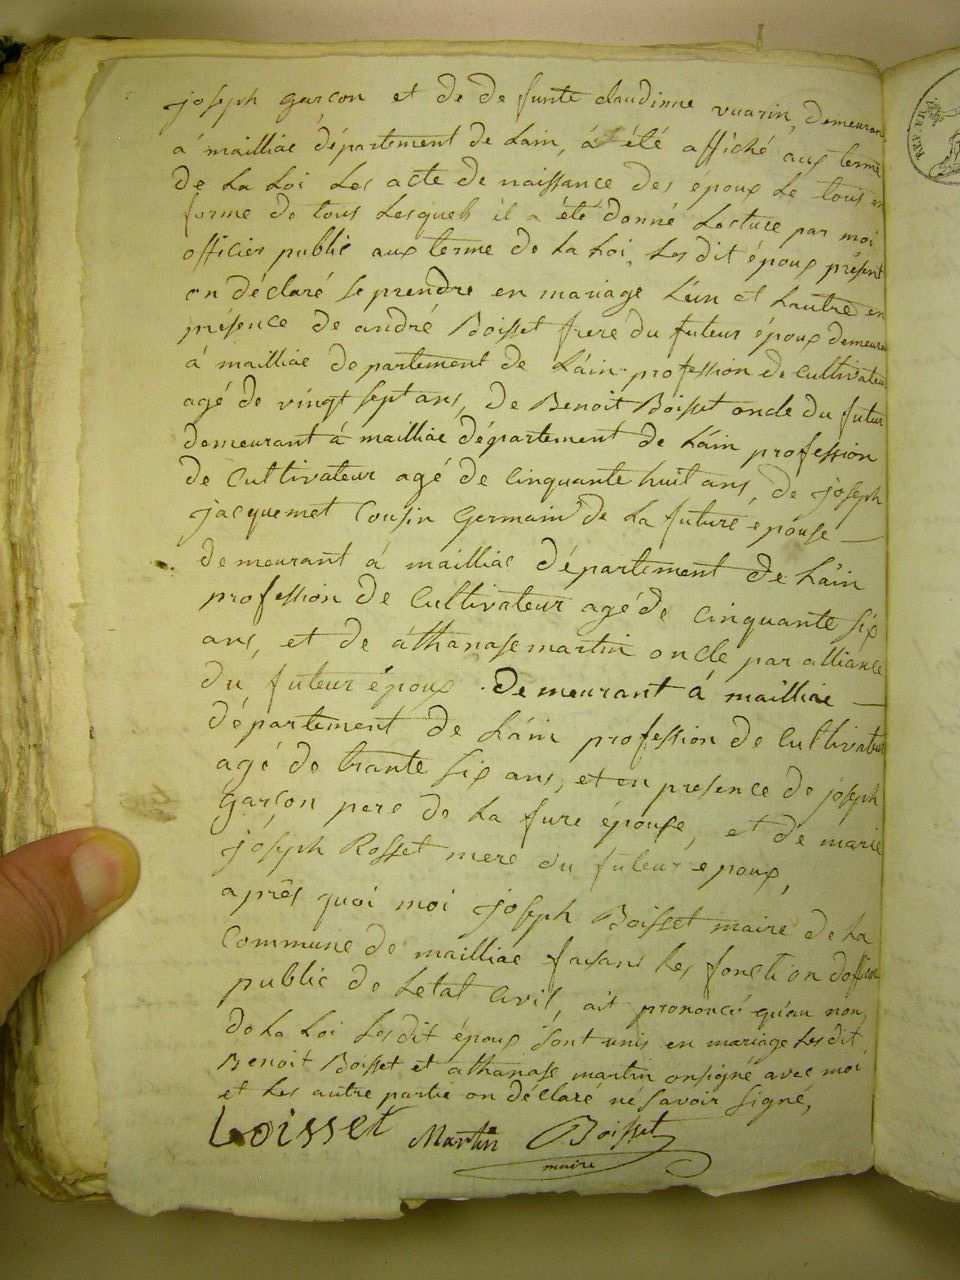 joseph garçon et de de funte claudinne vuarin, demeuran
à mailliac département de Lain, à été affiché aux terme
de La Loi Les acte de naissance des époux Le tous en
forme de tous Lesquels il a été donné Lecture par moi
officier public aux terme de La Loi, Les dit époux présent
on déclaré se prendre en mariage L'un et Lautre en
présence de andré Boisset frere du futeur époux demeuran
à mailliac département de Lain profession de cultivateur
agé de vingt sept ans, de Benoit Boisset oncle du futur
demeurant à mailliac département de Lain profession
de Cultivateur agé de cinquante huit ans, de joseph
jacquemet Cousin Germain de La future épouse
demeurant à mailliac département de Lain
profession de Cultivateur agé de cinquante six
ans, et de athanase martin oncle par alliance
du futeur époux demeurant à mailliac
département de Lain profession de Cultivateur
agé de trante six ans, et en presence de joseph
garçon pere de La fure épouse, et de marie
joséph Rosset mere du futeur epoux,
après quoi moi joseph Boisset maire de La
Commune de mailliac faisans Les fonction doffici
public de Letat Civil, ait prononcé qu'au non
de La Loi Lesdit époux sont unis en mariage Lesdit
Benoit Boisset et athanase martin onsigné avec moi
et Les autre partie on déclaré né savoir signé,
Boisset Martin Boisset
maire